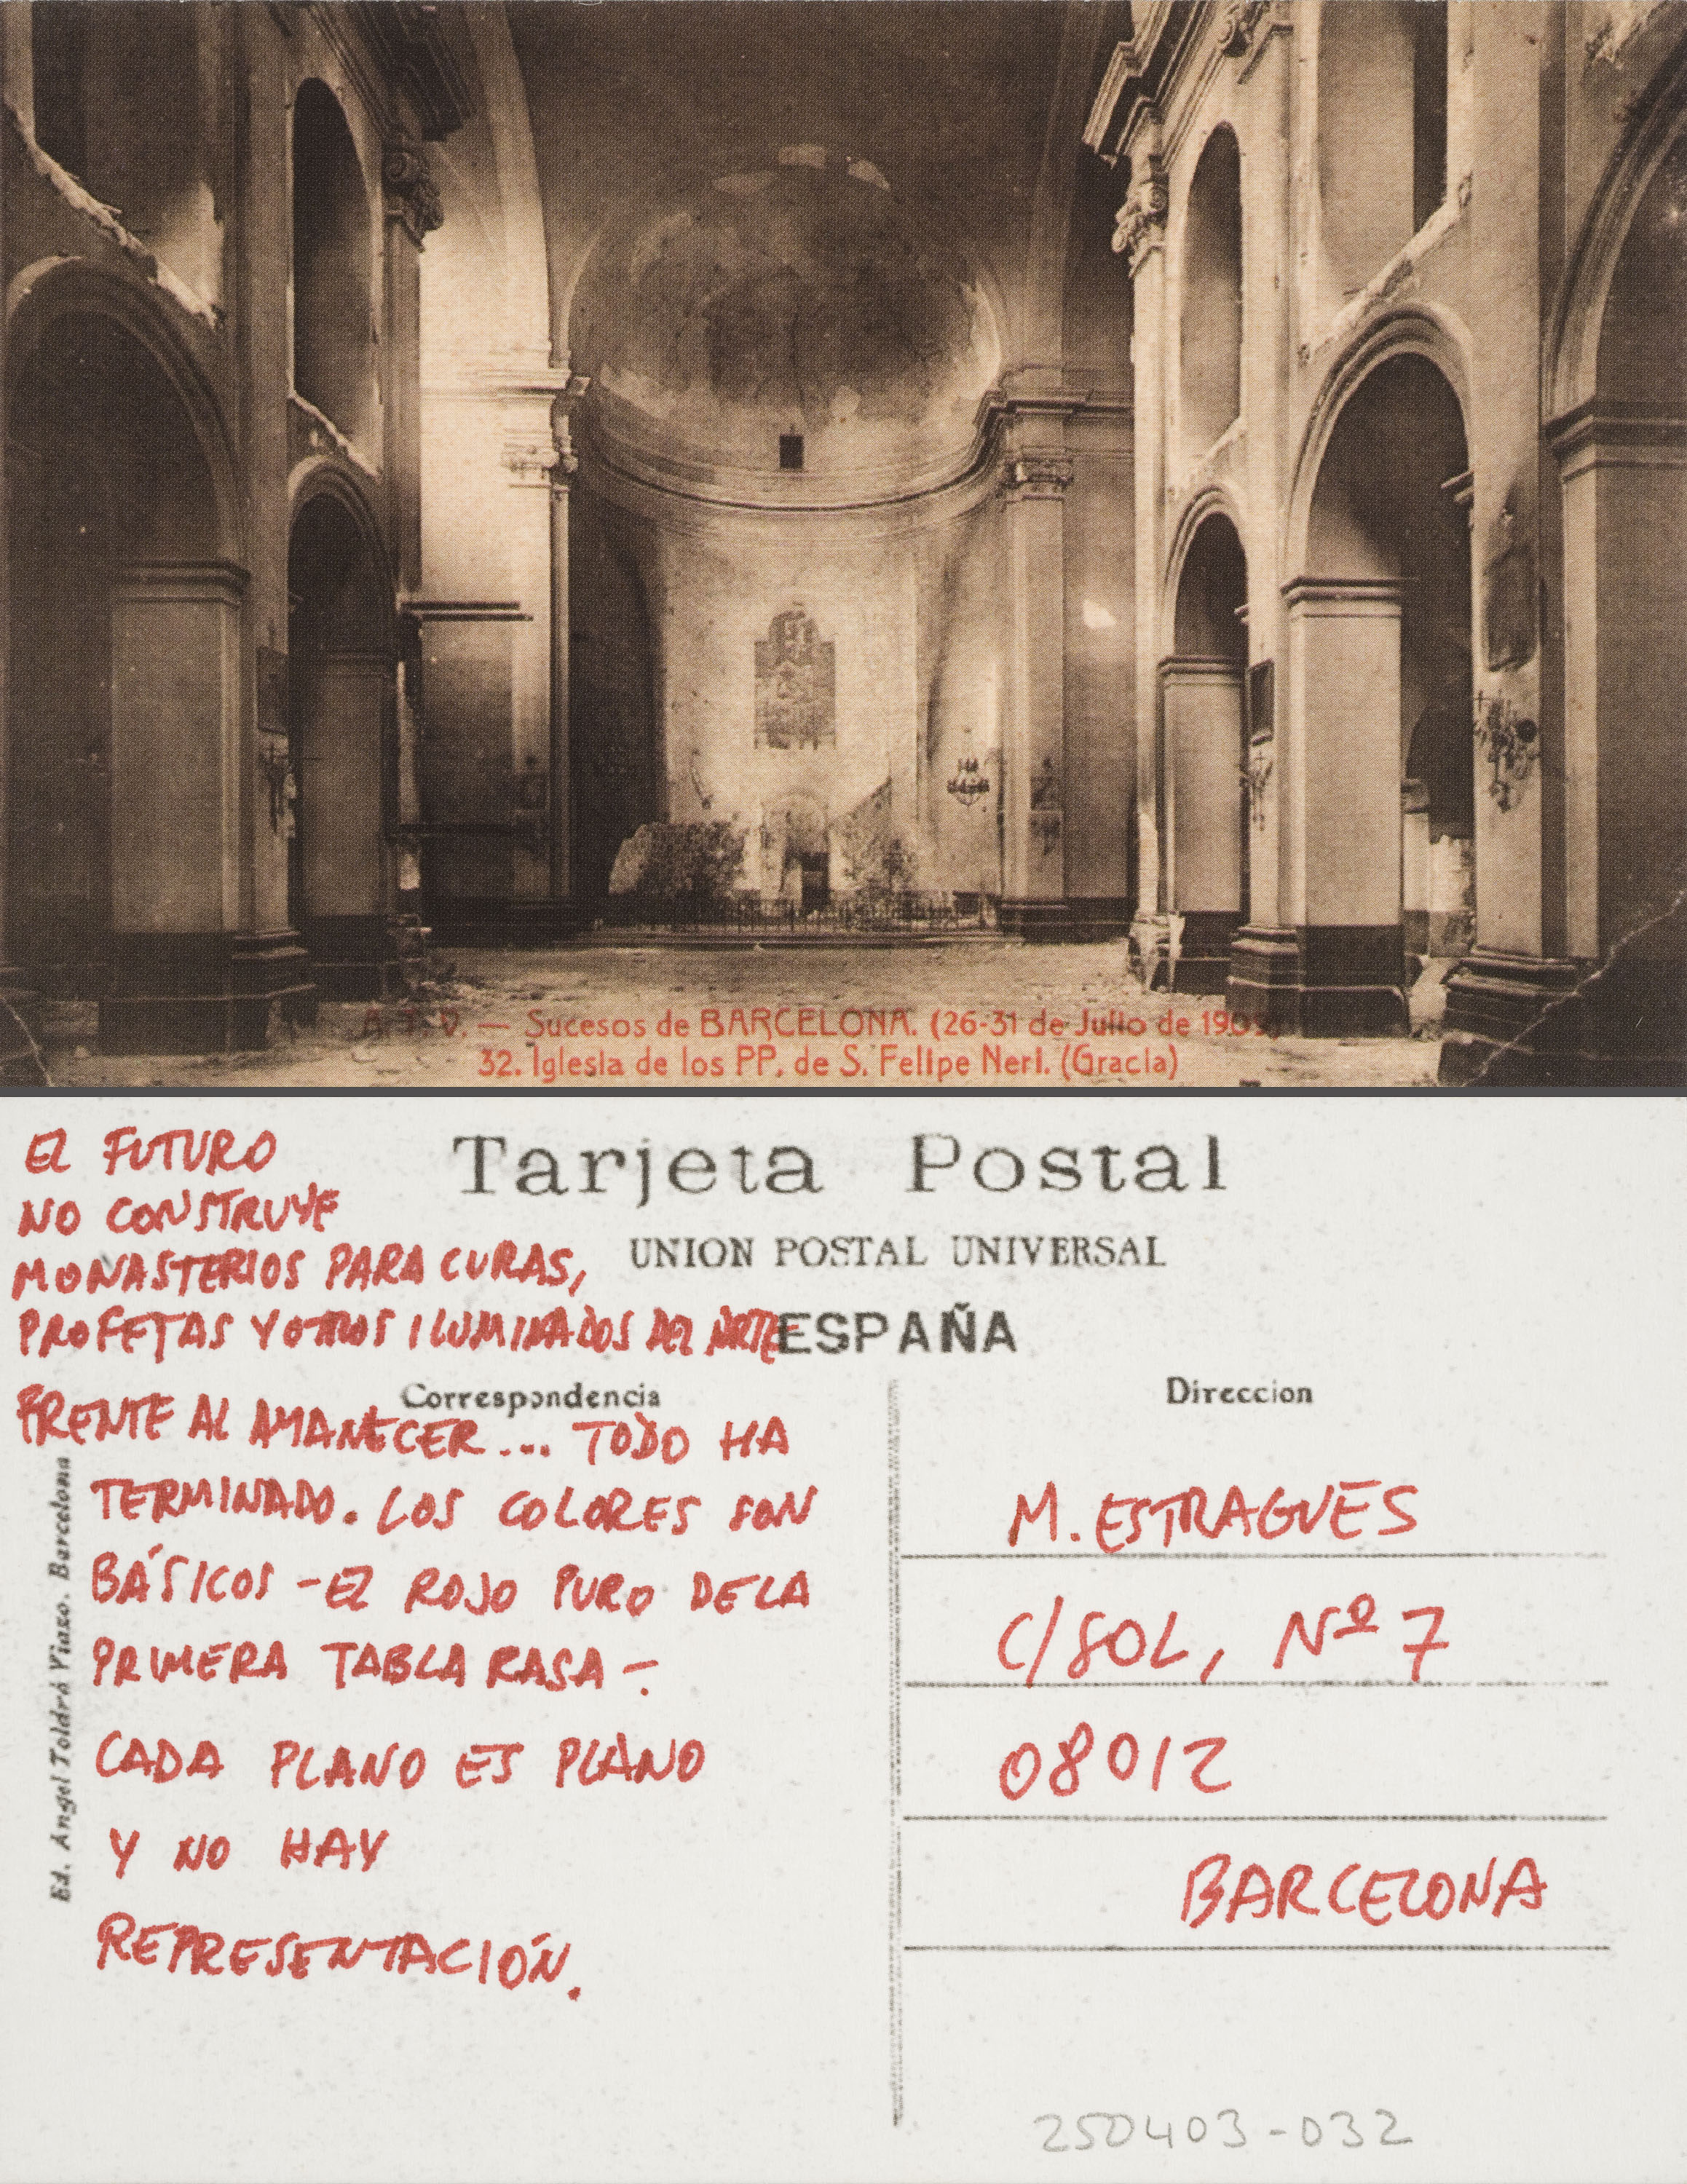 A. T. V. — Sucesos de BARCELONA. (26-31 de Julio de 1909)
32. Iglesia de los PP. de S. Felipe Neri. (Gracia)
EL FUTURO
NO CONSTRUYE
MONASTERIOS PARA CURAS,
PROFETAS Y OTROS ILUMINADOS DEL ARTE
Tarjeta Postal
UNION POSTAL UNIVERSAL
ESPAÑA
Correspondencia
FRENTE AL AMANECER... TODO HA
TERMINADO. LOS COLORES SON
BÁSICOS - EL ROJO PURO DE LA
PRIMERA TABLA RASA -.
CADA PLANO ES PLANO
Y NO HAY
REPRESENTACIÓN.
Ed. Ángel Toldrá Viazo. Barcelona
Direccion
M. ESTRAGUÉS
C/SOL, Nº 7
08012
BARCELONA
250403-032